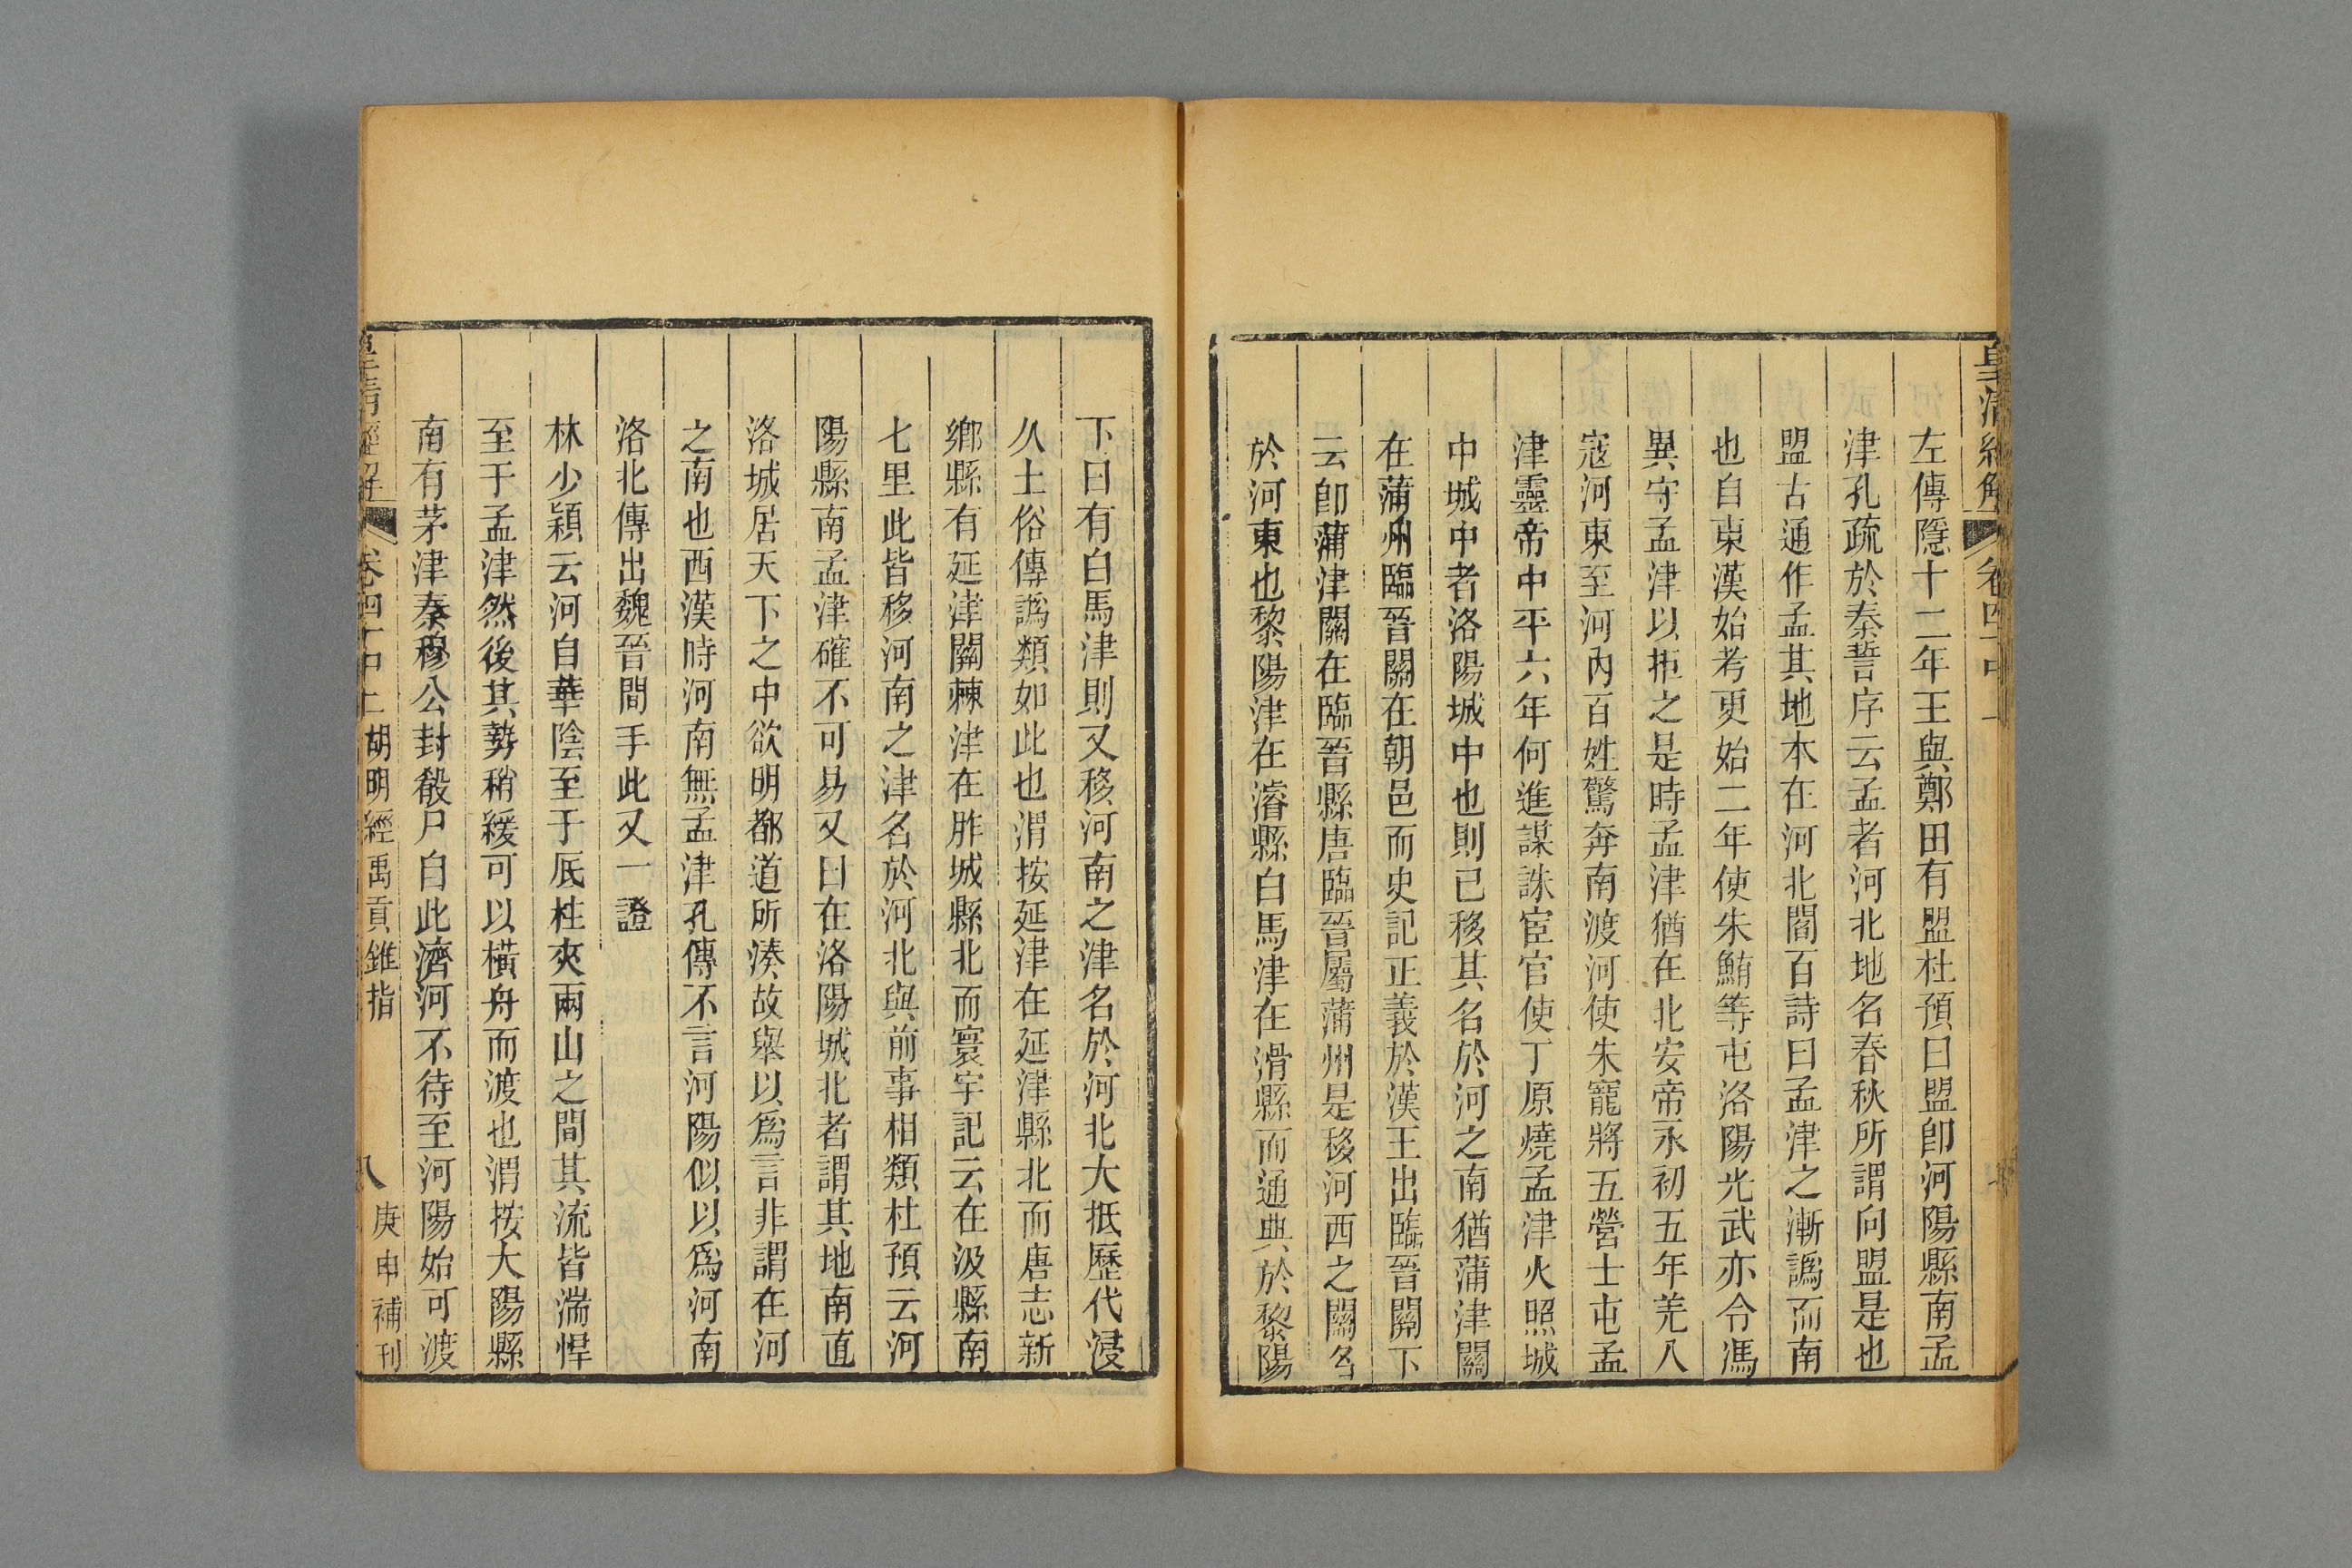 皇清經解 卷四十中
左傳隱十二年王與鄭田有盟杜預曰盟卽河陽縣南孟
津孔疏於秦誓序云孟者河北地名春秋所謂向盟是也
盟古通作孟其地本在河北閻百詩曰孟津之漸譌而南
也自東漢始考更始二年使朱鮪等屯洛陽光武亦令馮
異守孟津以拒之是時孟津猶在北安帝永初五年羌入
寇河東至河內百姓驚奔南渡河使朱寵將五營士屯孟
津靈帝中平六年何進謀誅宦官使丁原燒孟津火照城
中城中者洛陽城中也則已移其名於河之南猶蒲津關
在蒲州臨晉關在朝邑而史記正義於漢王出臨晉關下
云卽蒲津關在臨晉縣唐臨晉屬蒲州是移河西之關名
於河東也黎陽津在濬縣白馬津在滑縣而通典於黎陽
下曰有白馬津則又移河南之津名於河北大抵歷代浸
久土俗傳譌類如此也渭按延津在延津縣北而唐志新
鄉縣有延津關棘津在胙城縣北而寰宇記云在汲縣南
七里此皆移河南之津名於河北與前事相類杜預云河
陽縣南孟津確不可易又曰在洛陽城北者謂其地南直
洛城居天下之中欲明都道所湊故舉以爲言非謂在河
之南也西漢時河南無孟津孔傳不言河陽似以爲河南
洛北傳出魏晉間手此又一證
林少穎云河自華陰至于厎柱夾兩山之間其流皆湍悍
至于孟津然後其勢稍緩可以橫舟而渡也渭按大陽縣
南有茅津秦穆公封殽尸自此濟河不待至河陽始可渡
皇清經解 卷四十中上 胡明經禹貢錐指 八 庚申補刊